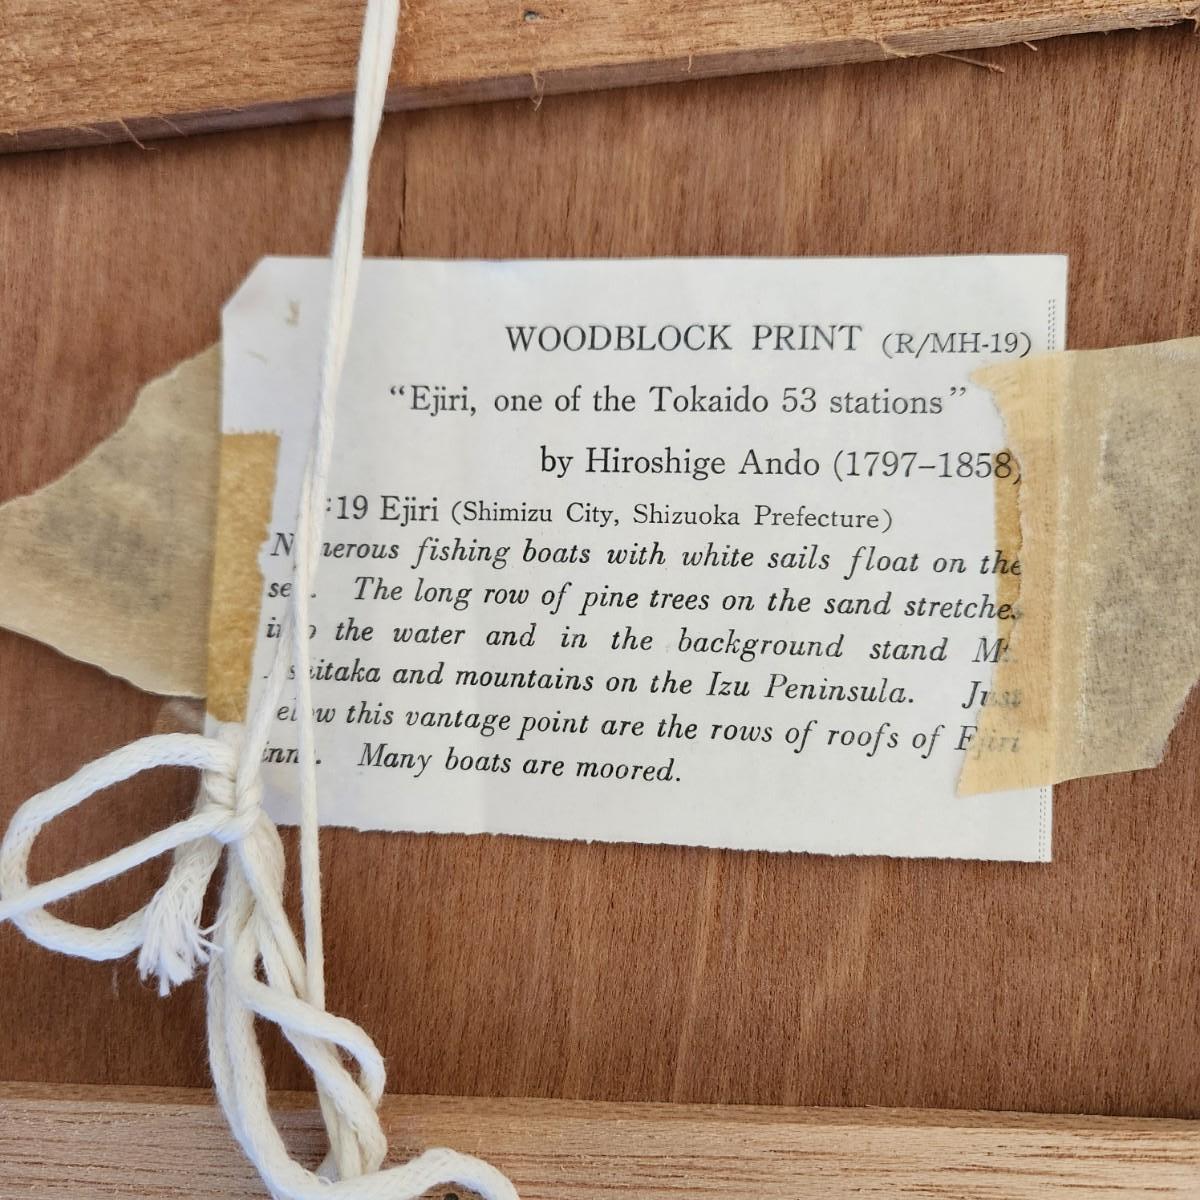 WOODBLOCK PRINT (R/MH-19)
“Ejiri, one of the Tokaido 53 stations”
by Hiroshige Ando (1797–1858)
:19 Ejiri (Shimizu City, Shizuoka Prefecture)
Numerous fishing boats with white sails float on the
sea. The long row of pine trees on the sand stretches
into the water and in the background stand Mt.
Ashitaka and mountains on the Izu Peninsula. Just
below this vantage point are the rows of roofs of Ejiri
inns. Many boats are moored.